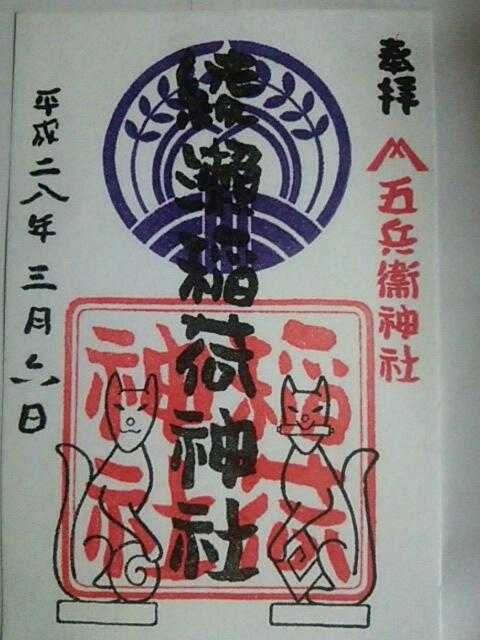 奉拝
五兵衛神社
綾瀬稲荷神社
稲荷
神社
平成二八年三月六日